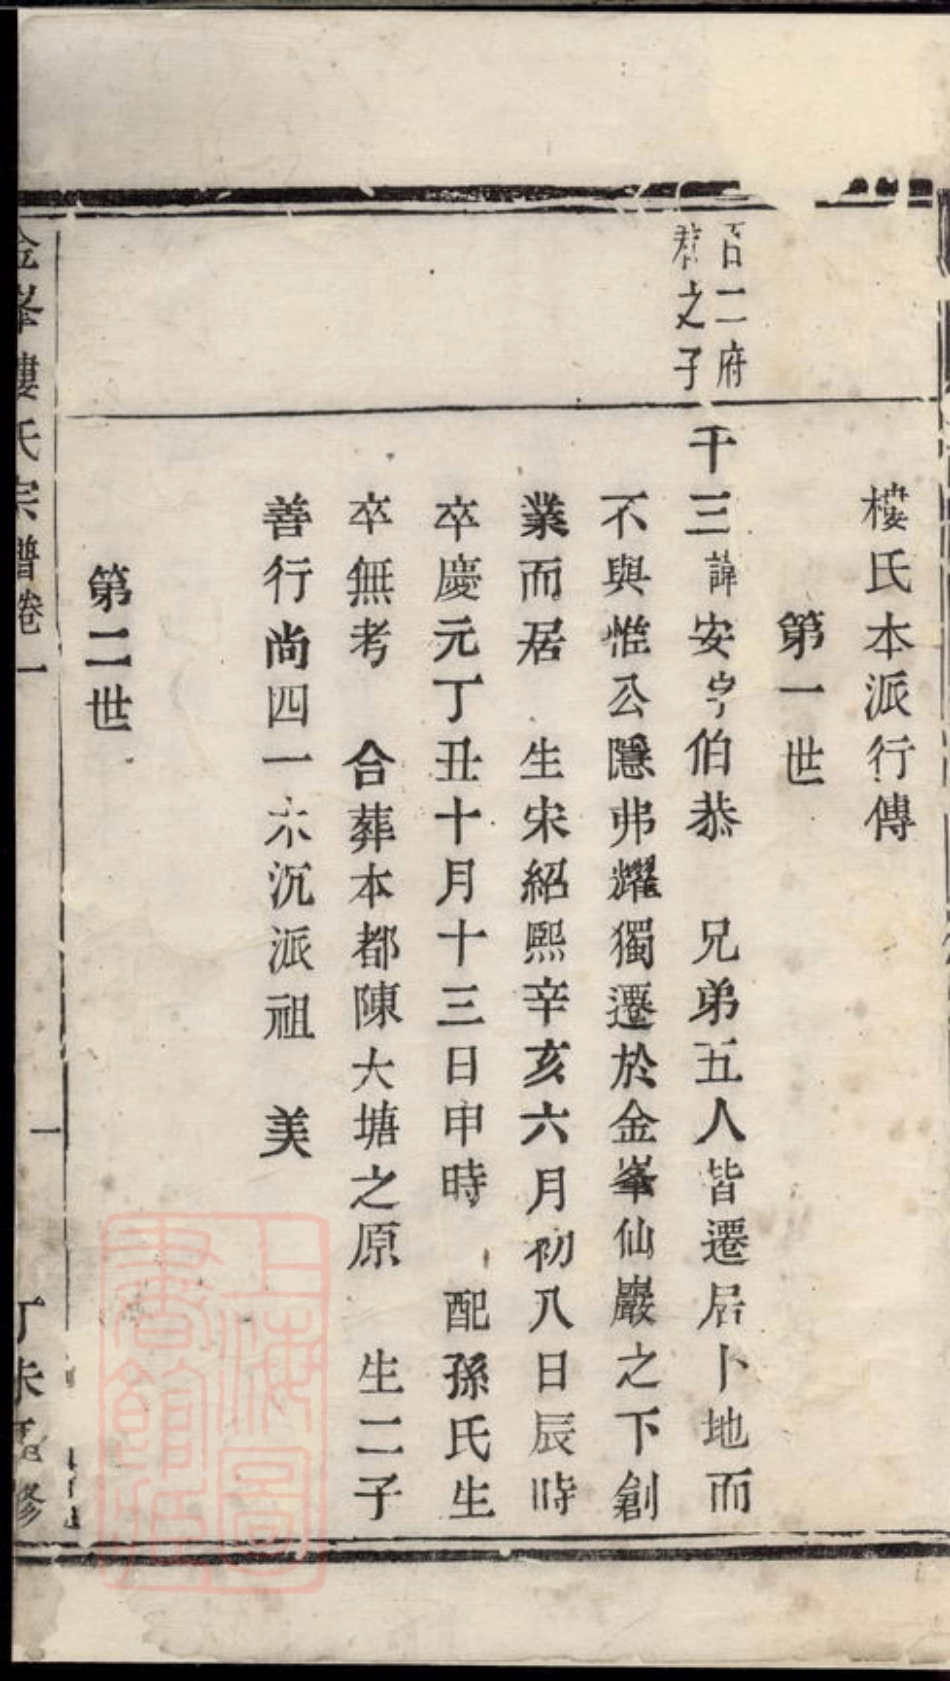 樓氏本派行傳
第一世
百二府
君之子
千三諱安字伯恭　兄弟五人皆遷居卜地而
不與惟公隱弗耀獨遷於金峯仙巖之下創
業而居　生宋紹熙辛亥六月初八日辰時
卒慶元丁丑十月十三日申時　配孫氏生
卒無考　合葬本都陳大塘之原　生二子
善行尚四一木沉派祖　美
第二世
金峯樓氏宗譜卷一
一
丁未重修
上海圖
書館藏